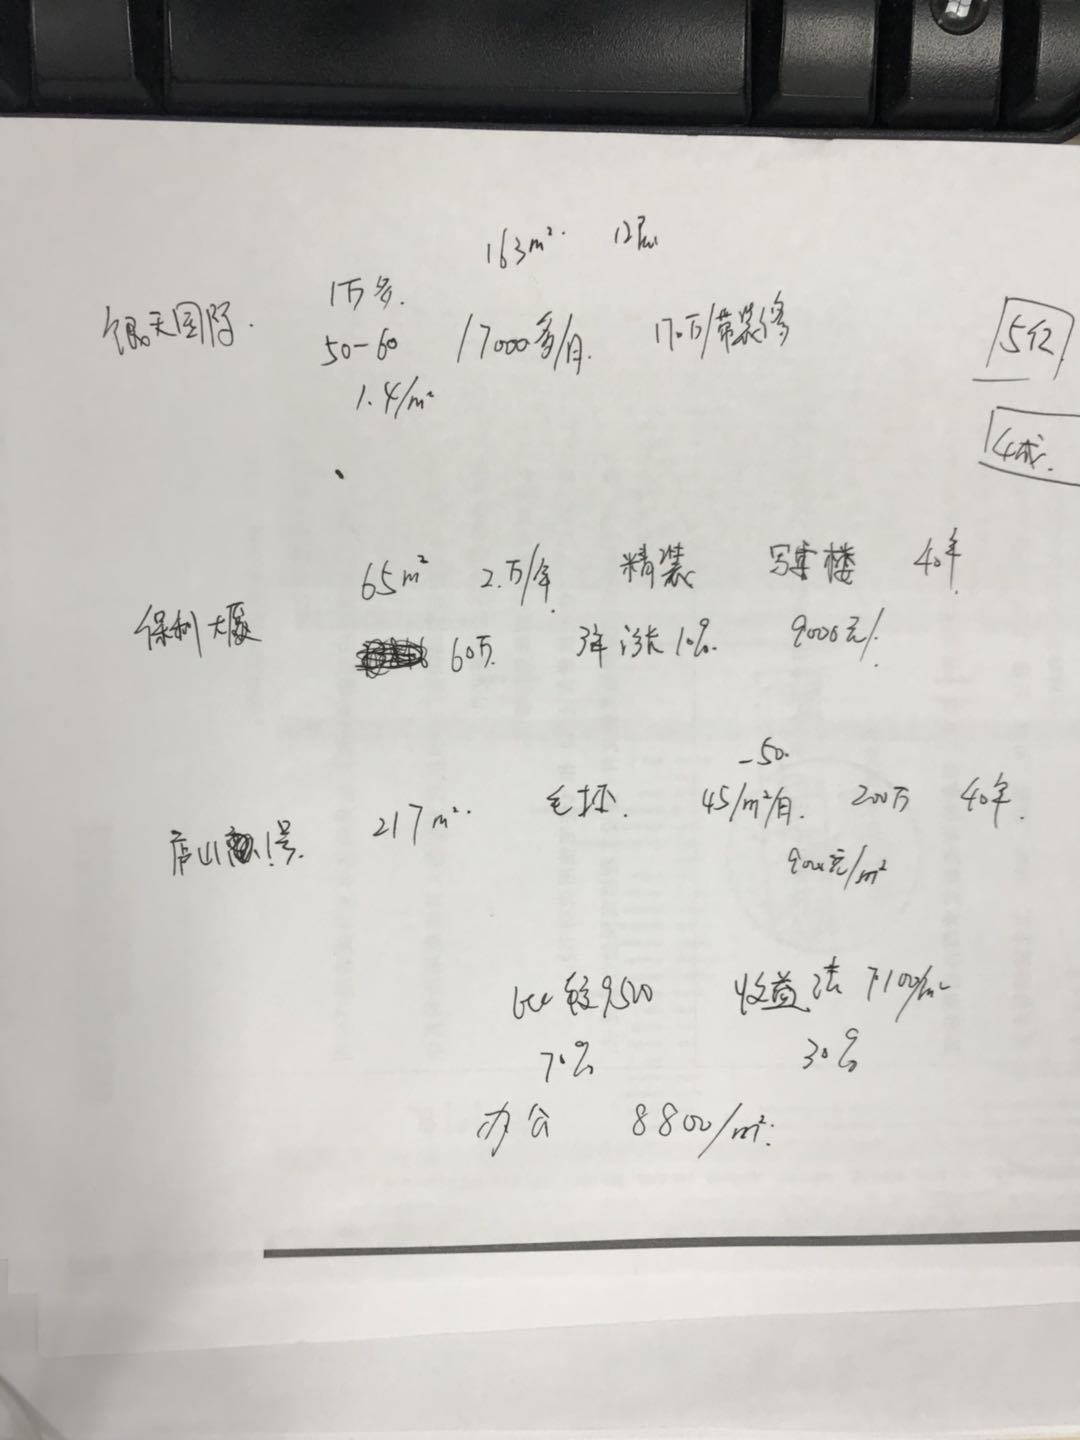 163m². 12层
1万多.
银天国际. 50-60 17000多/月. 170万/带装修
1.4/m²
5亿
4成.
65m² 2.万/年. 精装 写字楼 40年
保利大厦 60万 年涨10%. 9000元/.
-50.
庐山1号. 217m². 毛坯. 45/m²/月. 200万 40年.
9000元/m²
比较9500 收益法 7100/m²
70% 30%
办公 8800/m².